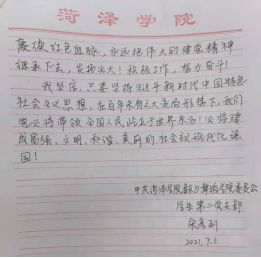 菏泽学院
赓续红色血脉，永远把伟大的建党精神
继承下去，发扬光大！积极工作，努力奋斗！
我坚信，只要坚持习近平新时代中国特色
社会主义思想，在百年未有之大变局形势下，我们
党必将带领全国人民屹立于世界东方！必将建
成富强、文明、和谐、美丽的社会主义现代化强
国！
中共菏泽学院音乐舞蹈学院委员会
学生第二党支部
2021.7.1